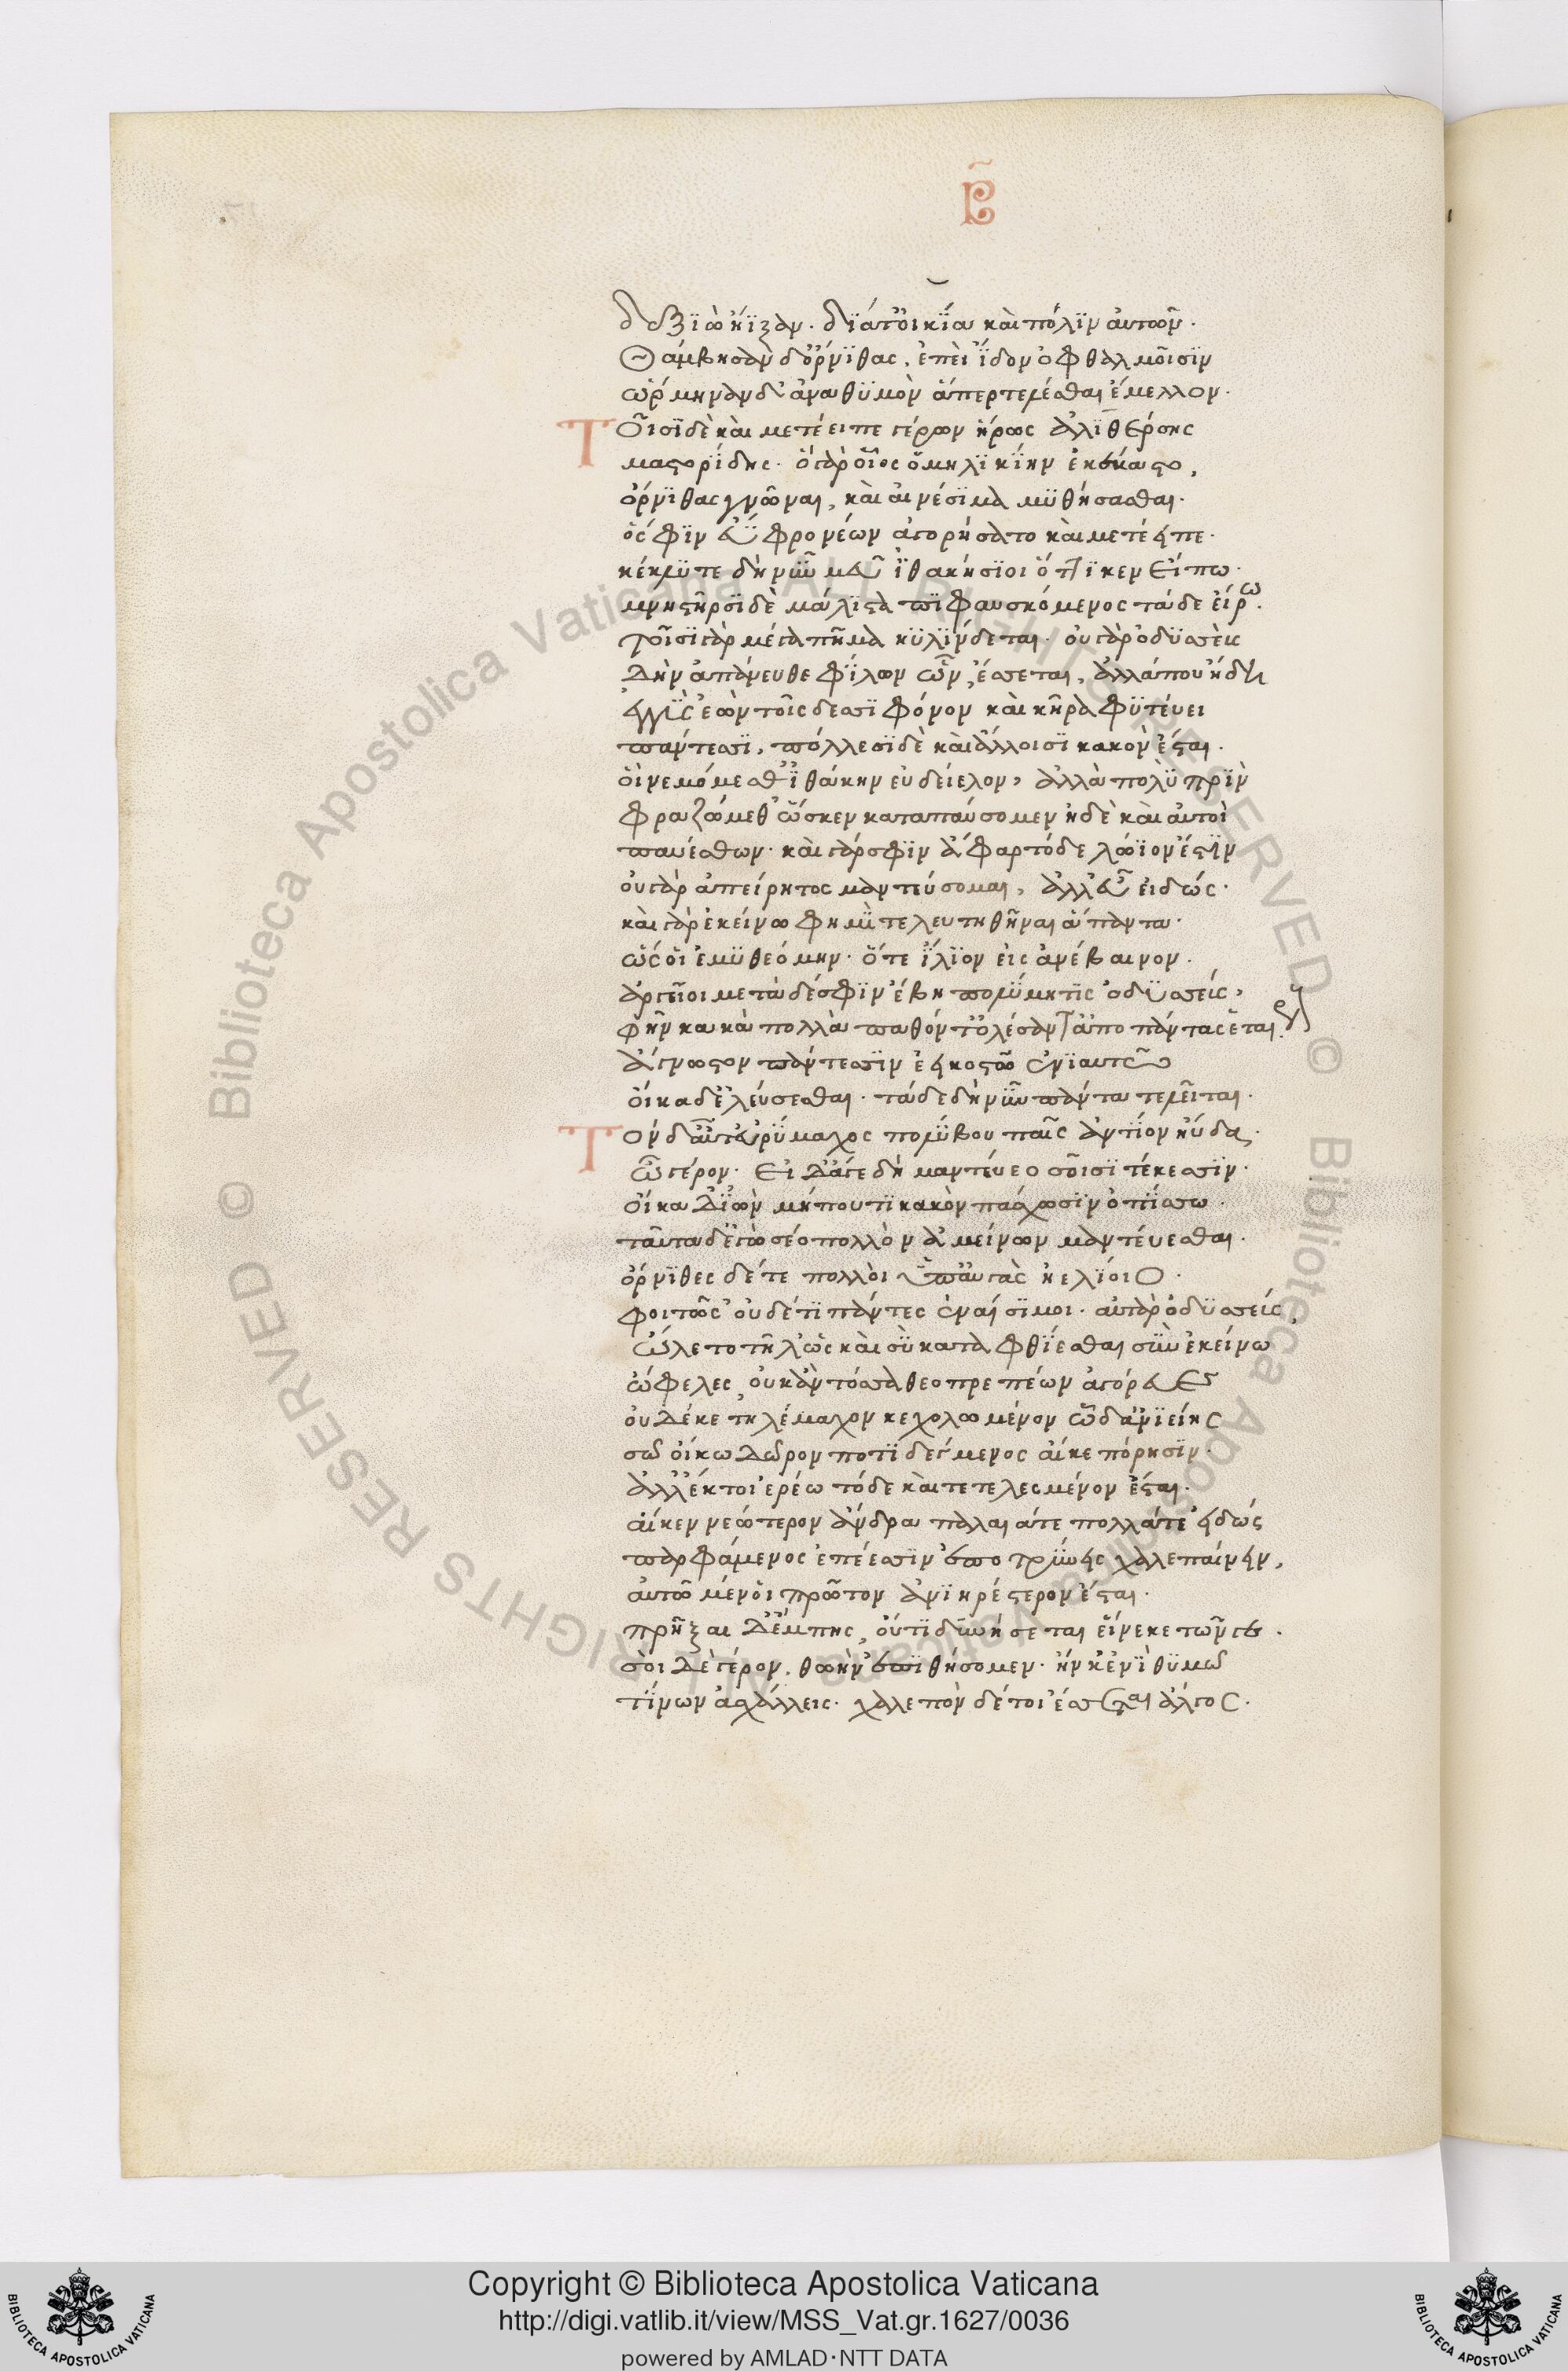 β
δεξιὼ ἤϊξαν· διά τ' οἰκία καὶ πόλιν αὐτῶν·
Θάμβησαν δ' ὄρνιθας, ἐπεὶ ἴδον ὀφθαλμοῖσιν
ὥρμηναν δ' ἀνὰ θυμὸν ἅπερ τελέεσθαι ἔμελλον·
Τοῖσι δὲ καὶ μετέειπε γέρων ἥρως ἀλιθέρσης
μαστορίδης· ὁ γὰρ οἶος ὁμηλικίην ἐκέκαστο,
ὄρνιθας γνῶναι, καὶ αἰνέσιμα μυθήσασθαι·
ὅ σφιν ἐυφρονέων ἀγορήσατο καὶ μετέειπε·
κέκλυτε δὴ νῦν μευ ἰθακήσιοι ὅττί κεν εἴπω·
μνηστῆρσι δὲ μάλιστα πιφαυσκόμενος τάδε εἴρω·
τοῖσι γὰρ μέγα πῆμα κυλίνδεται· οὐ γὰρ ὀδυσσεὺς
δὴν ἀπάνευθε φίλων ὧν, ἔσσεται, ἀλλά που ἤδη
ἐγγὺς ἐὼν τοῖς δεσσι φόνον καὶ κῆρα φυτεύει
πάντεσσι, πόλλεσι δὲ καὶ ἄλλοισι κακὸν ἔσται·
οἳ νεμόμεσθ' ἰθάκην εὐδείελον, ἀλλὰ πολὺ πρὶν
φραζώμεθ' ὥς κεν καταπαύσομεν ἠδὲ καὶ αὐτοὶ
παυέσθων· καὶ γάρ σφιν ἄφαρ τόδε λώϊον ἐστὶν
οὐ γὰρ ἀπείρητος μαντεύσομαι, ἀλλ' εὖ εἰδώς·
καὶ γὰρ ἐκείνω φημὶ τελευτηθῆναι ἅπαντα·
ὥς οἱ ἐμυθεόμην· ὅτε ἴλιον εἰς ἀνέβαινον·
ἀργεῖοι μετὰ δέ σφιν ἔβη πολύμητις ὀδυσσεύς,
φῆν κακὰ πολλὰ παθόντ' ὀλέσαντ' ἄπο πάντας ἑταίρους
ἄγνωστον πάντεσσιν ἐεικοστῶ ἐνιαυτῶ
οἴκαδ' ἐλεύσεσθαι· τάδε δὴ νῦν πάντα τελεῖται·
Τὸν δ' αὖτ' εὐρύμαχος πολύβου παῖς ἀντίον ηὔδα·
ὦ γέρον· εἰ δ' ἄγε δὴ μαντεύεο σοῖσι τέκεσσιν·
οἴκαδ' ἰὼν μή πού τι κακὸν πάσχωσιν ὀπίσσω·
ταῦτα δ' ἐγὼ σέο πολλὸν ἀμείνων μαντεύεσθαι·
ὄρνιθες δέ τε πολλοὶ ὑπ' αὐγὰς ἠελίοιο·
φοιτῶσ' οὐδέ τι πάντες ἐναίσιμοι· αὐτὰρ ὀδυσσεύς,
ὤλετο τῆλ' ὡς καὶ σὺ καταφθίεσθαι σὺν ἐκείνω
ὤφελες, οὐκ ἂν τόσσα θεοπρεπέων ἀγόρευες
οὐδέ κε τηλέμαχον κεχολωμένον ὧδ' ἀνιείης
σῶ οἴκω δῶρον ποτιδέγμενος αἴ κε πόρησιν·
ἀλλ' ἔκ τοι ἐρέω τόδε καὶ τετελεσμένον ἔσται·
αἴ κεν νεώτερον ἄνδρα παλαιά τε πολλά τε εἰδώς
παρφάμενος ἐπέεσσιν ἐποτρύνεις χαλεπαίνειν,
αὐτῶ μέν οἱ πρῶτον ἀνιηρέστερον ἔσται·
πρῆξαι δ' ἔμπης, οὔτι δυνήσεται εἵνεκε τῶνγε·
σοὶ δὲ γέρον, θωὴν ἐπιθήσομεν· ἥν κ' ἐνὶ θυμῶ
τίνων ἀσχάλλεις· χαλεπὸν δέ τοι ἔσσεται ἄλγος·
Copyright © Biblioteca Apostolica Vaticana
http://digi.vatlib.it/view/MSS_Vat.gr.1627/0036
powered by AMLAD·NTT DATA